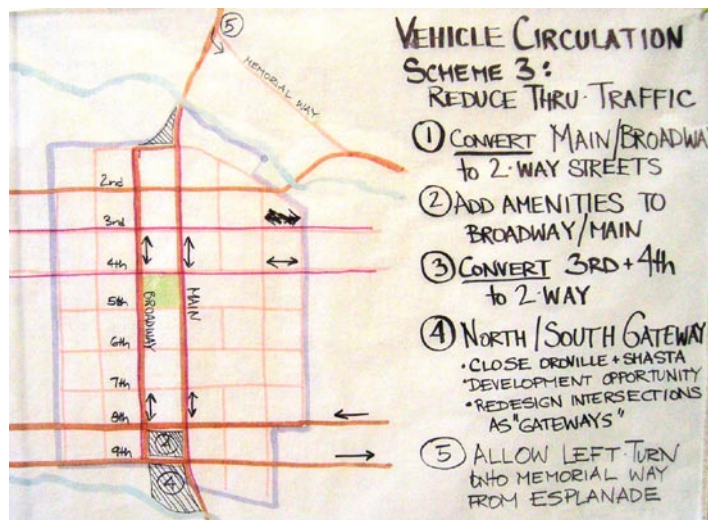 5
MEMORIAL WAY
2nd
3rd
4th
5th
6th
7th
8th
9th
BROADWAY
MAIN
4
VEHICLE CIRCULATION
SCHEME 3:
REDUCE THRU·TRAFFIC
1 CONVERT MAIN/BROADWA
to 2·WAY STREETS
2 ADD AMENITIES TO
BROADWAY/MAIN
3 CONVERT 3RD + 4th
to 2·WAY
4 NORTH/SOUTH GATEWAY
• CLOSE OROVILLE + SHASTA
• DEVELOPMENT OPPORTUNITY
• REDESIGN INTERSECTIONS
AS "GATEWAYS"
5 ALLOW LEFT·TURN
ONTO MEMORIAL WAY
FROM ESPLANADE